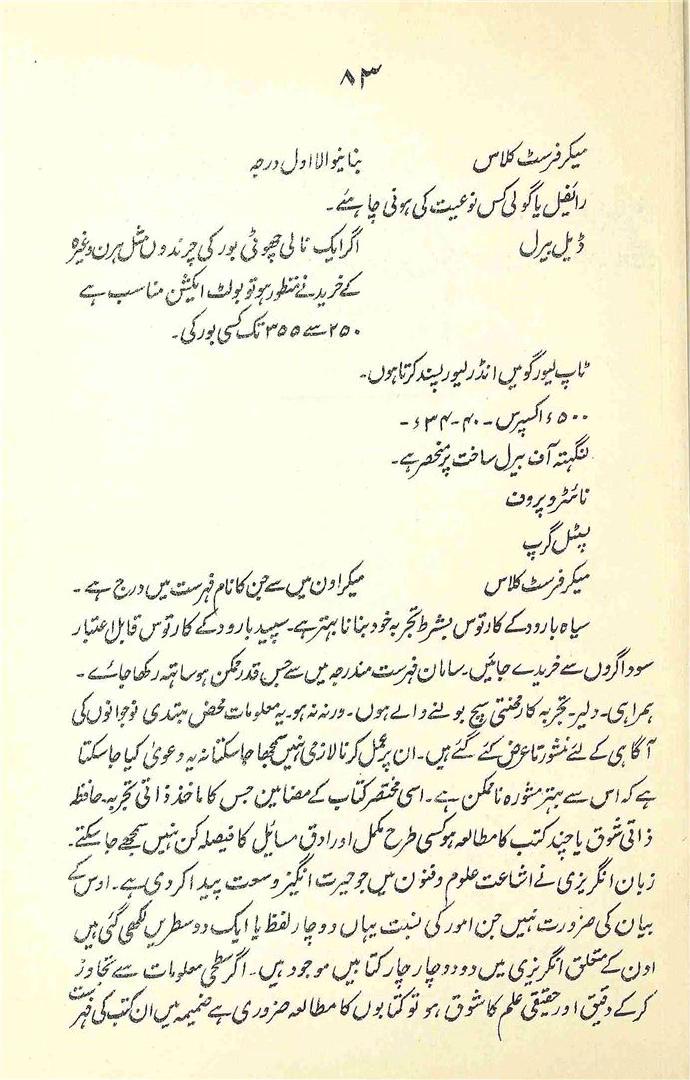 ۸۳
میکر فرسٹ کلاس بنانیوالا اول درجہ
رائفیل یا گولی کس نوعیت کی ہونی چاہئے۔
ڈبل بیرل اگر ایک نالی چھوٹی بور کی چرندوں مثل ہرن وغیرہ
کے خریدنے منظور ہو تو بولٹ ایکشن مناسب ہے
۲۵۰ سے ۳۵۵ تک کسی بور کی۔
ٹاپ لیور گو میں انڈر لیور پسند کرتا ہوں۔
۵۰۰ء اکسپرس۔ ۴۰-۳۴ء۔
لنگہتہ آف بیرل ساخت پر منحصر ہے۔
نائٹرو پروف
پسٹل گرپ
میکر فرسٹ کلاس میکر اون میں سے جن کا نام فہرست میں درج ہے۔
سیاہ بارود کے کارتوس بشرط تجربہ خود بنانا بہتر ہے۔ سپید بارود کے کارتوس قابل اعتبار
سوداگروں سے خریدے جائیں۔ سامان فہرست مندرجہ میں سے جس قدر ممکن ہو ساتہہ رکھا جائے۔
ہمراہی۔ دلیر۔ تجربہ کار محنتی سچ بولنے والے ہوں۔ ورنہ نہ ہو۔ یہ معلومات محض مبتدی نوجوانوں کی
آگاہی کے لئے مشورتاً عرض کئے گئے ہیں۔ ان پر عمل کرنا لازمی نہیں سمجھا جا سکتا نہ یہ دعویٰ کیا جا سکتا
ہے کہ اس سے بہتر مشورہ ناممکن ہے۔ اسی مختصر کتاب کے مضامین جس کا ماخذ ذاتی تجربہ۔ حافظہ
ذاتی شوق یا چند کتب کا مطالعہ ہو کسی طرح مکمل اور ادق مسایل کا فیصلہ کن نہیں سمجھے جا سکتے۔
زبان انگریزی نے اشاعت علوم و فنون میں جو حیرت انگیز وسعت پیدا کر دی ہے۔ اوس کے
بیان کی ضرورت نہیں جن امور کی نسبت یہاں دو چار لفظ یا ایک دو سطریں لکھی گئی ہیں
اون کے متعلق انگریزی میں دو دو چار چار کتابیں موجود ہیں۔ اگر سطحی معلومات سے تجاوز
کر کے دقیق اور حقیقی علم کا شوق ہو تو کتابوں کا مطالعہ ضروری ہے ضمیمہ میں ان کتب کی فہرست